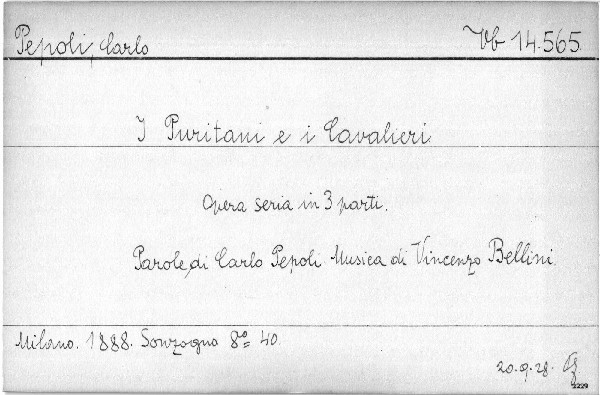 Pepoli, Carlo Vb 14.565.
I Puritani e i Cavalieri
Opera seria in 3 parti.
Parole di Carlo Pepoli Musica di Vincenzo Bellini.
Milano. 1888. Sonzogno 8º 40.
20.9.28.
2229